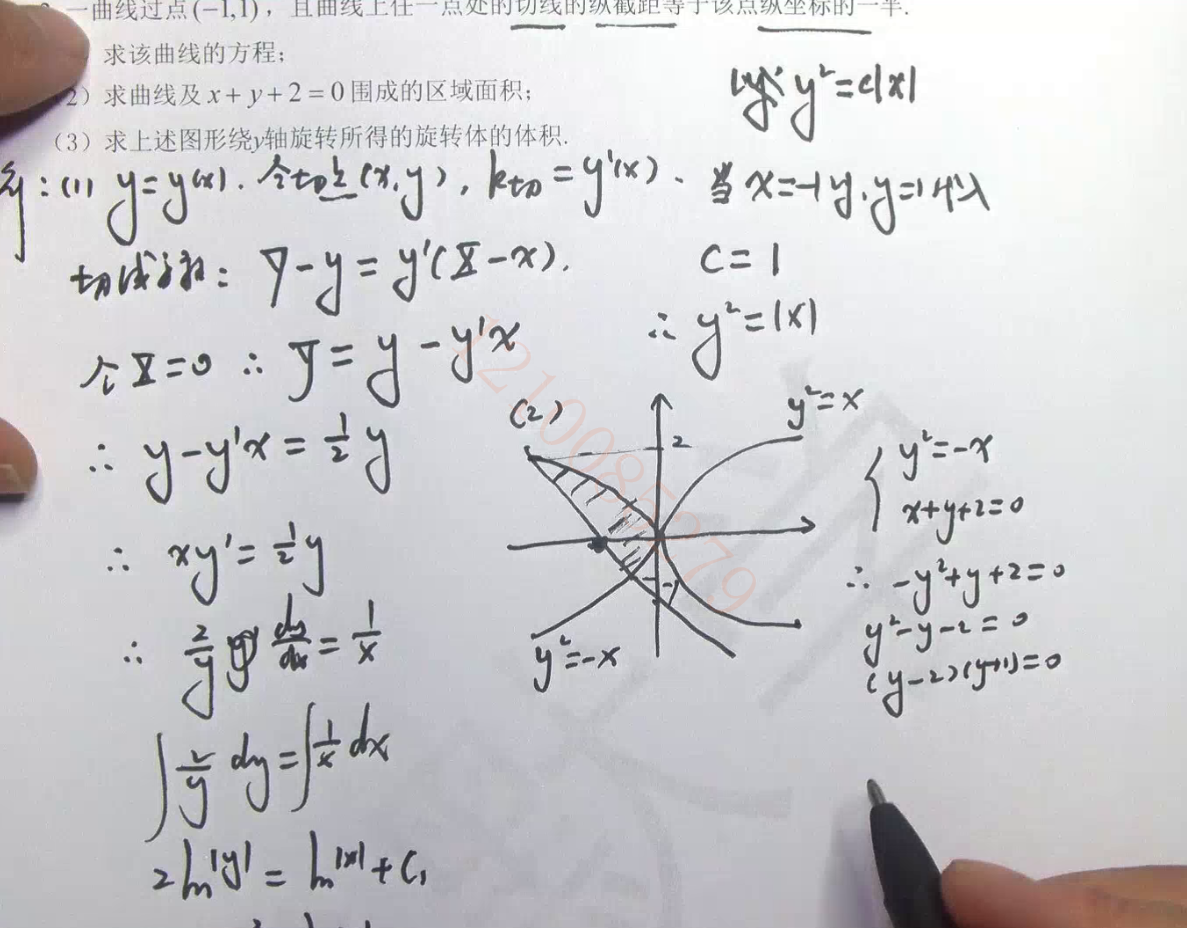 一曲线过点(-1,1)，且曲线上任一点处的切线的纵截距等于该点纵坐标的一半.
求该曲线的方程；
2）求曲线及x+y+2=0围成的区域面积；
（3）求上述图形绕y轴旋转所得的旋转体的体积.
y²=c|x|
(1) y=y(x). 令切点(x,y), k切=y'(x).
当x=-1时,y=1代入
切线方程: Y-y=y'(X-x).
C=1
令X=0 ∴ Y=y-y'x
∴ y²=|x|
∴ y-y'x=½y
∴ xy'=½y
∴ 2/y dy/dx=1/x
∫2/y dy=∫1/x dx
2ln|y|=ln|x|+C₁
(2)
y²=x
2
-1
y²=-x
{ y²=-x
x+y+2=0
∴ -y²+y+2=0
y²-y-2=0
(y-2)(y+1)=0
1210085279